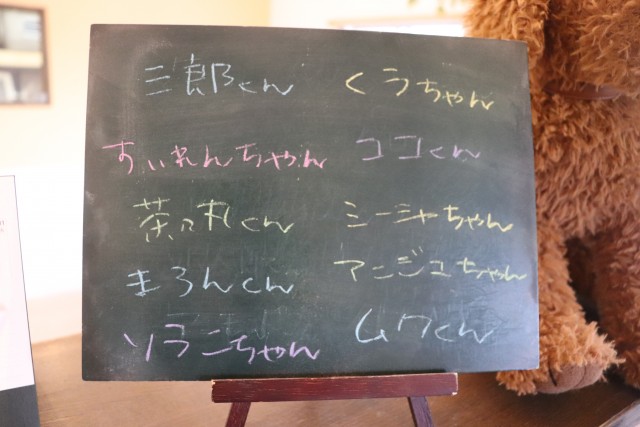 三郎くん
すいれんちゃん
茶々丸くん
まろんくん
ソラニちゃん
くうちゃん
ココくん
ミーシャちゃん
アンジュちゃん
ムクくん